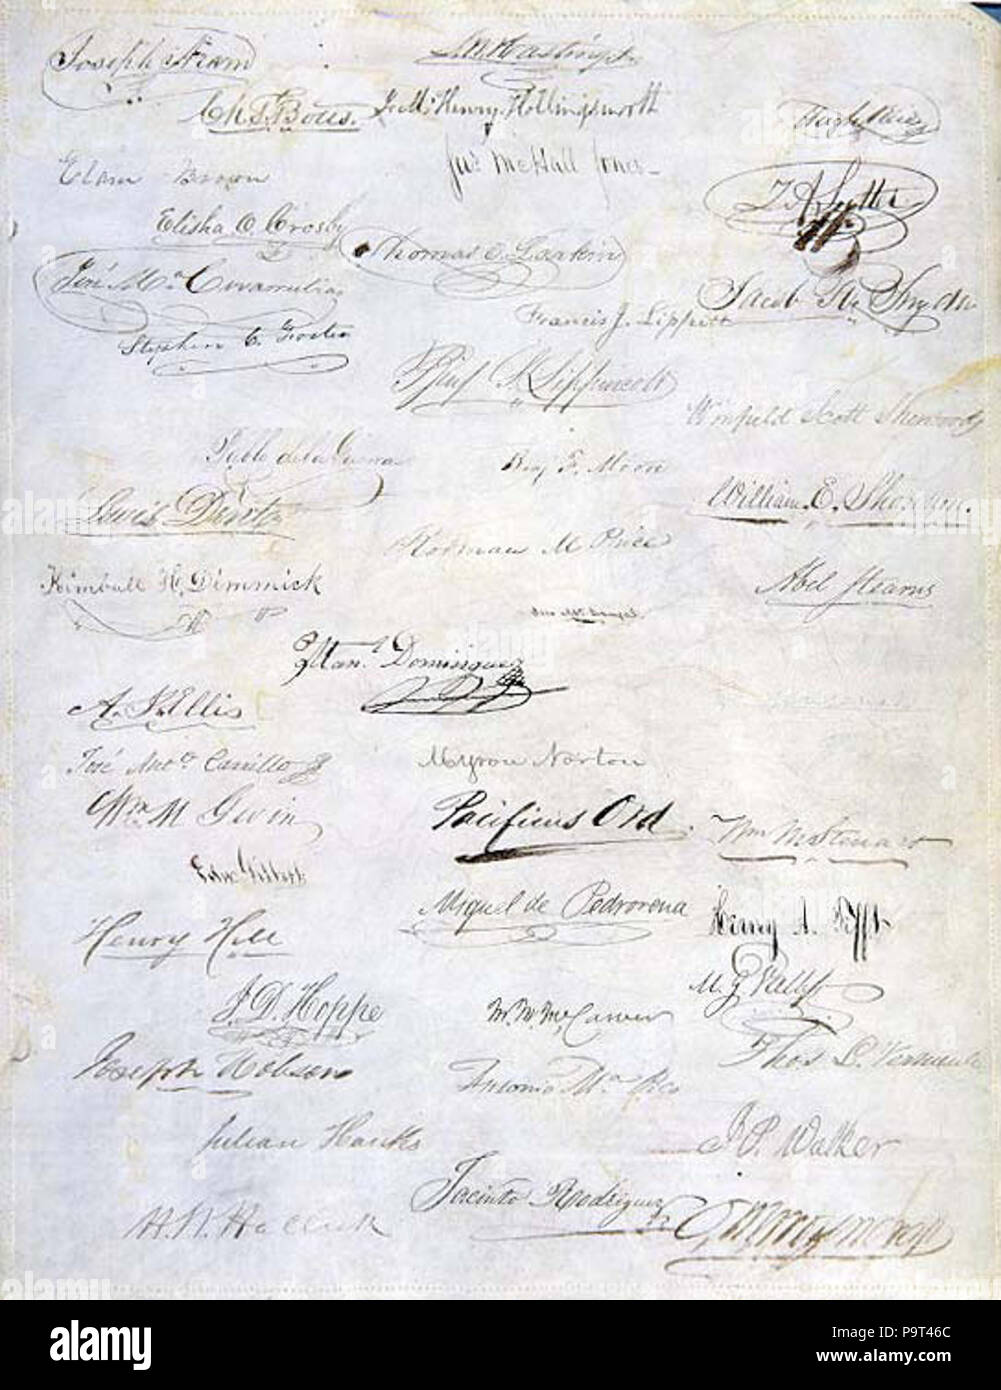 Joseph Aram
Chs. T. Botts.
Elam Brown
Elisha O. Crosby
José Ma. Covarrubias
Stephen C. Foster
Pablo de la Guerra
Lewis Dent
Kimball H. Dimmick
Man. Dominguez
A. J. Ellis
José Anto. Carrillo
Wm M Gwin
Edw. Gilbert
Henry Hill
J. D. Hoppe
Joseph Hobson
Julian Hanks
H. W. Halleck
L. W. Hastings
J. Mc. Henry Hollingsworth
Jas. McHall Jones
Thomas O. Larkin
Francis J. Lippitt
Benj. S. Lippincott
Benj. F. Moore
Rodman M Price
Myron Norton
Pacificus Ord
Miguel de Pedrorena
M. M. McCarver
Antonio Ma. Pico
Jacinto Rodriguez
Hugh Reid
J. A. Sutter
Jacob R. Snyder
Winfield Scott Sherwood
William E. Shannon.
Abel Stearns
Wm M Steuart
Henry A. Tefft
M. G. Vallejo
Thos L. Vermeule
J. P. Walker
alamy
Image ID: P9T46C
www.alamy.com